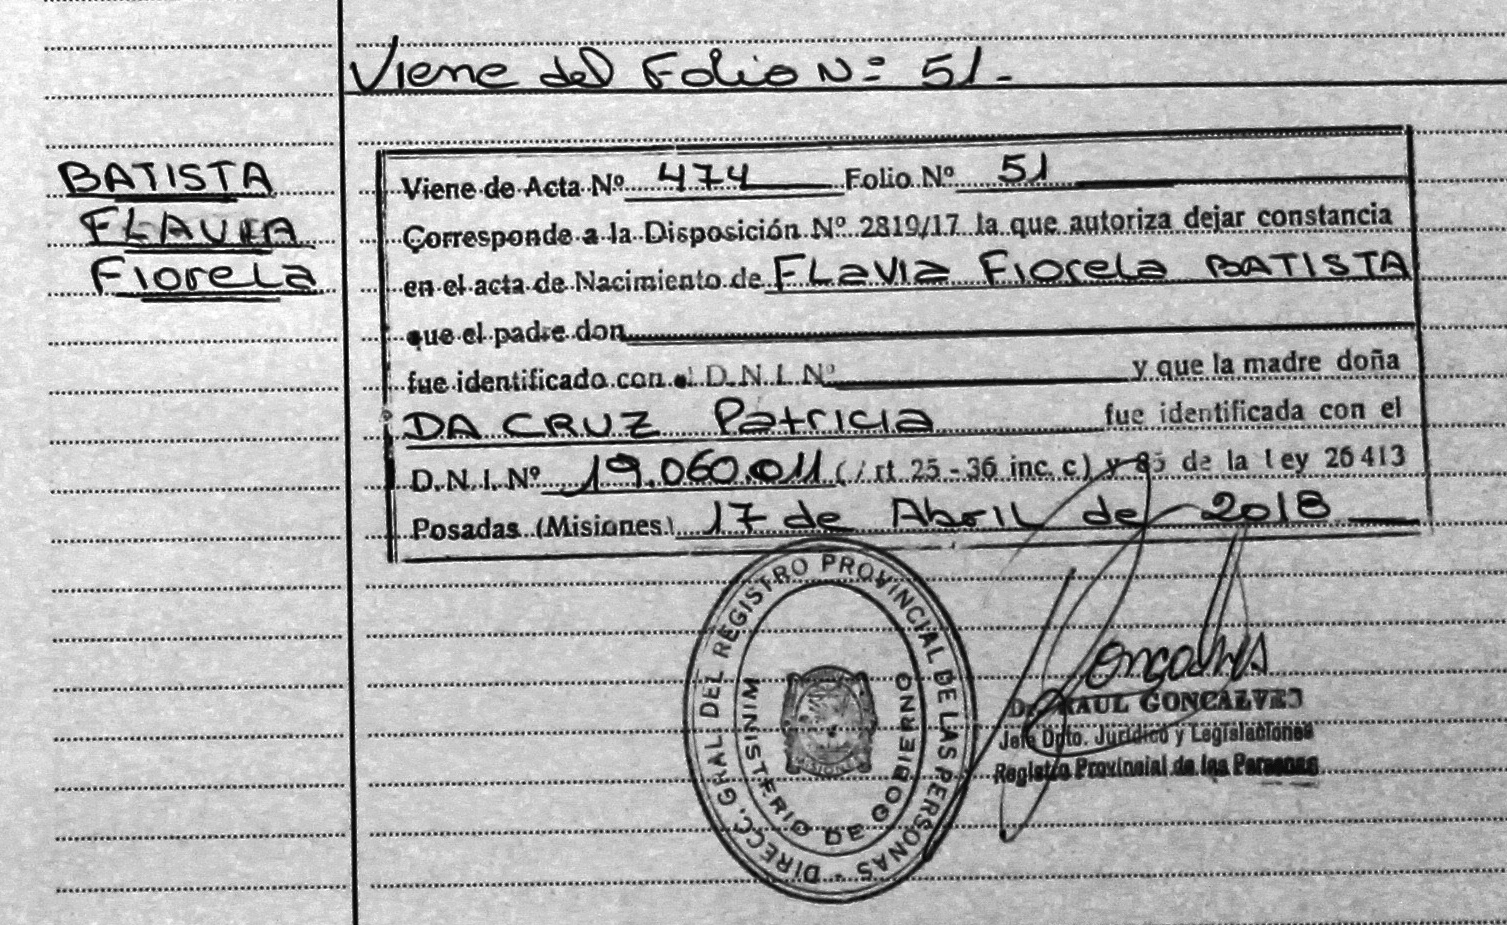 Viene del Folio Nº 51-
BATISTA
FLAVIA
Fiorela
Viene de Acta Nº 474 Folio Nº 51
Corresponde a la Disposición Nº 2819/17 la que autoriza dejar constancia
en el acta de Nacimiento de FLavia Fiorela BATISTA
que el padre don
fue identificado con el D.N.I. Nº y que la madre doña
DA CRUZ Patricia fue identificada con el
D.N.I. Nº 19.060.011 (Art 25-36 inc. c) y 85 de la Ley 26413
Posadas (Misiones) 17 de Abril de 2018
DIRECC. GRAL. DEL REGISTRO PROVINCIAL DE LAS PERSONAS -
MINISTERIO DE GOBIERNO
MISIONES
Dr. RAUL GONCALVES
Jefe Dpto. Jurídico y Legislaciones
Registro Provincial de las Personas